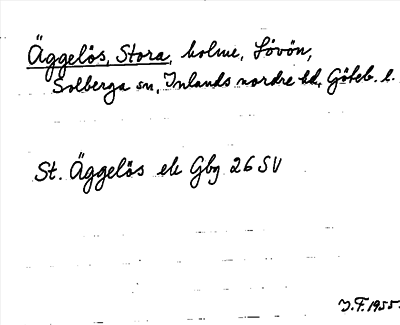 Äggelös, Stora, holme, Lövön,
Solberga sn, Inlands nordre hd, Göteb. l.
St. Äggelös ek Gbg 26 SV
J.F. 1955.